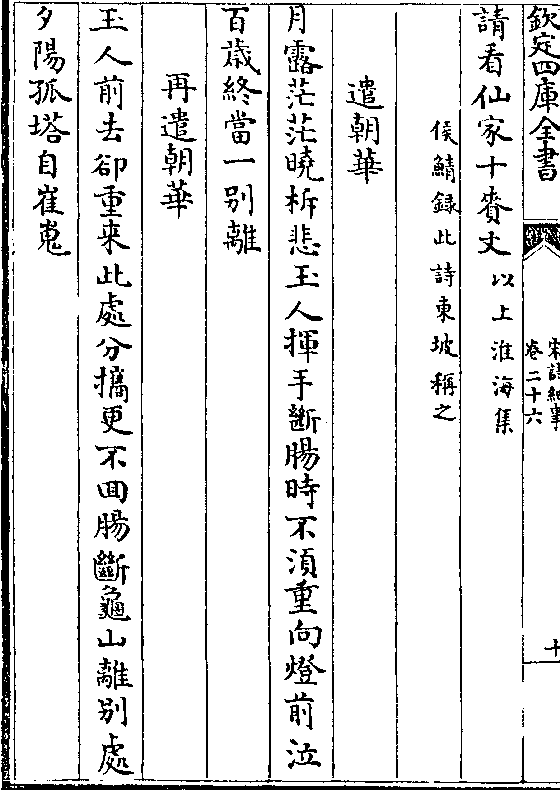 欽定四庫全書
宋詩紀事
卷二十六
十
請看仙家十賚文以上淮海集
侯鯖錄此詩東坡稱之
遣朝華
月露茫茫曉柝悲玉人揮手斷腸時不須重向燈前泣
百歳終當一别離
再遣朝華
玉人前去卻重來此處分攜更不回腸斷龜山離别處
夕陽孤塔自崔嵬